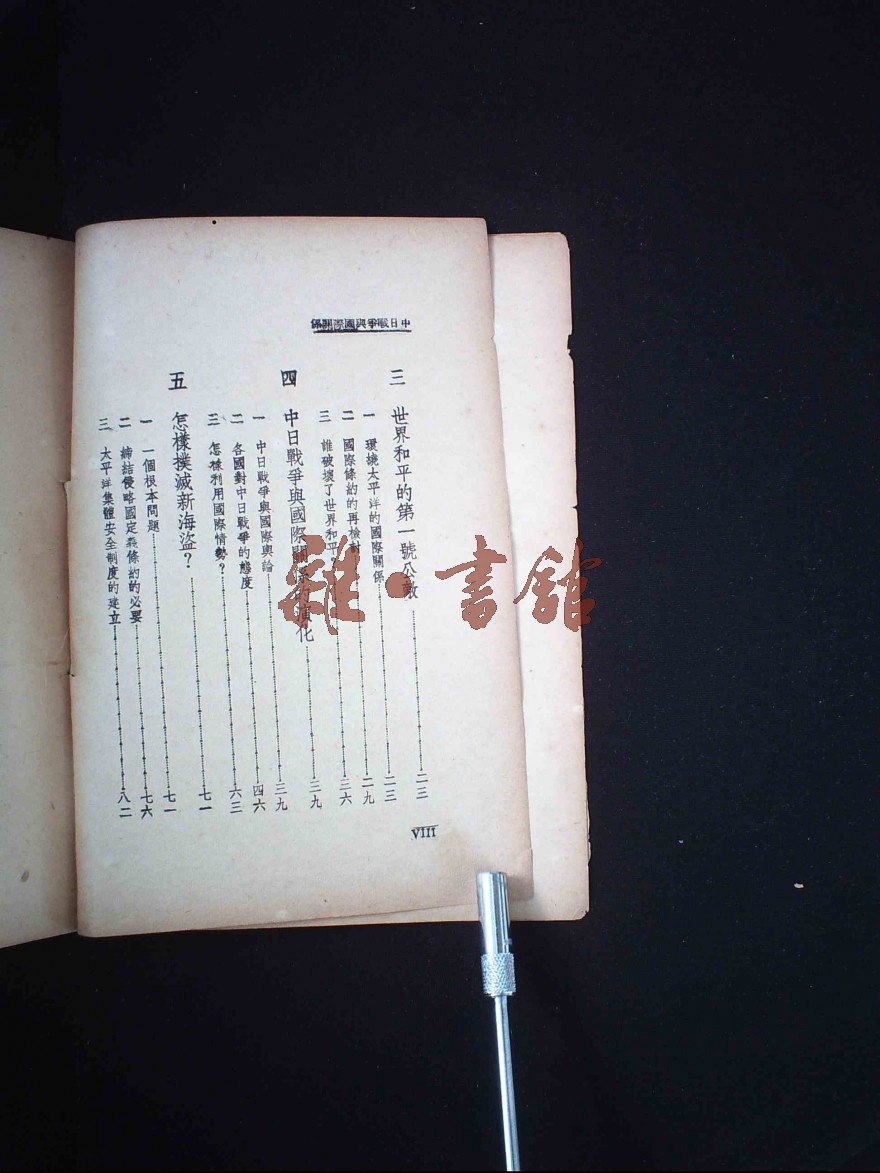 中日戰爭與國際關係
三 世界和平的第一號公敵……二三
一 環繞太平洋的國際關係……二三
二 國際條約的再檢討……二九
三 誰破壞了世界和平……三六
四 中日戰爭與國際關係的演化……三九
一 中日戰爭與國際輿論……三九
二 各國對中日戰爭的態度……四六
三 怎樣利用國際情勢？……六三
五 怎樣撲滅新海盜？……七一
一 一個根本問題……七一
二 締結侵略國定義條約的必要……七六
三 太平洋集體安全制度的建立……八二
VIII
雜·書館